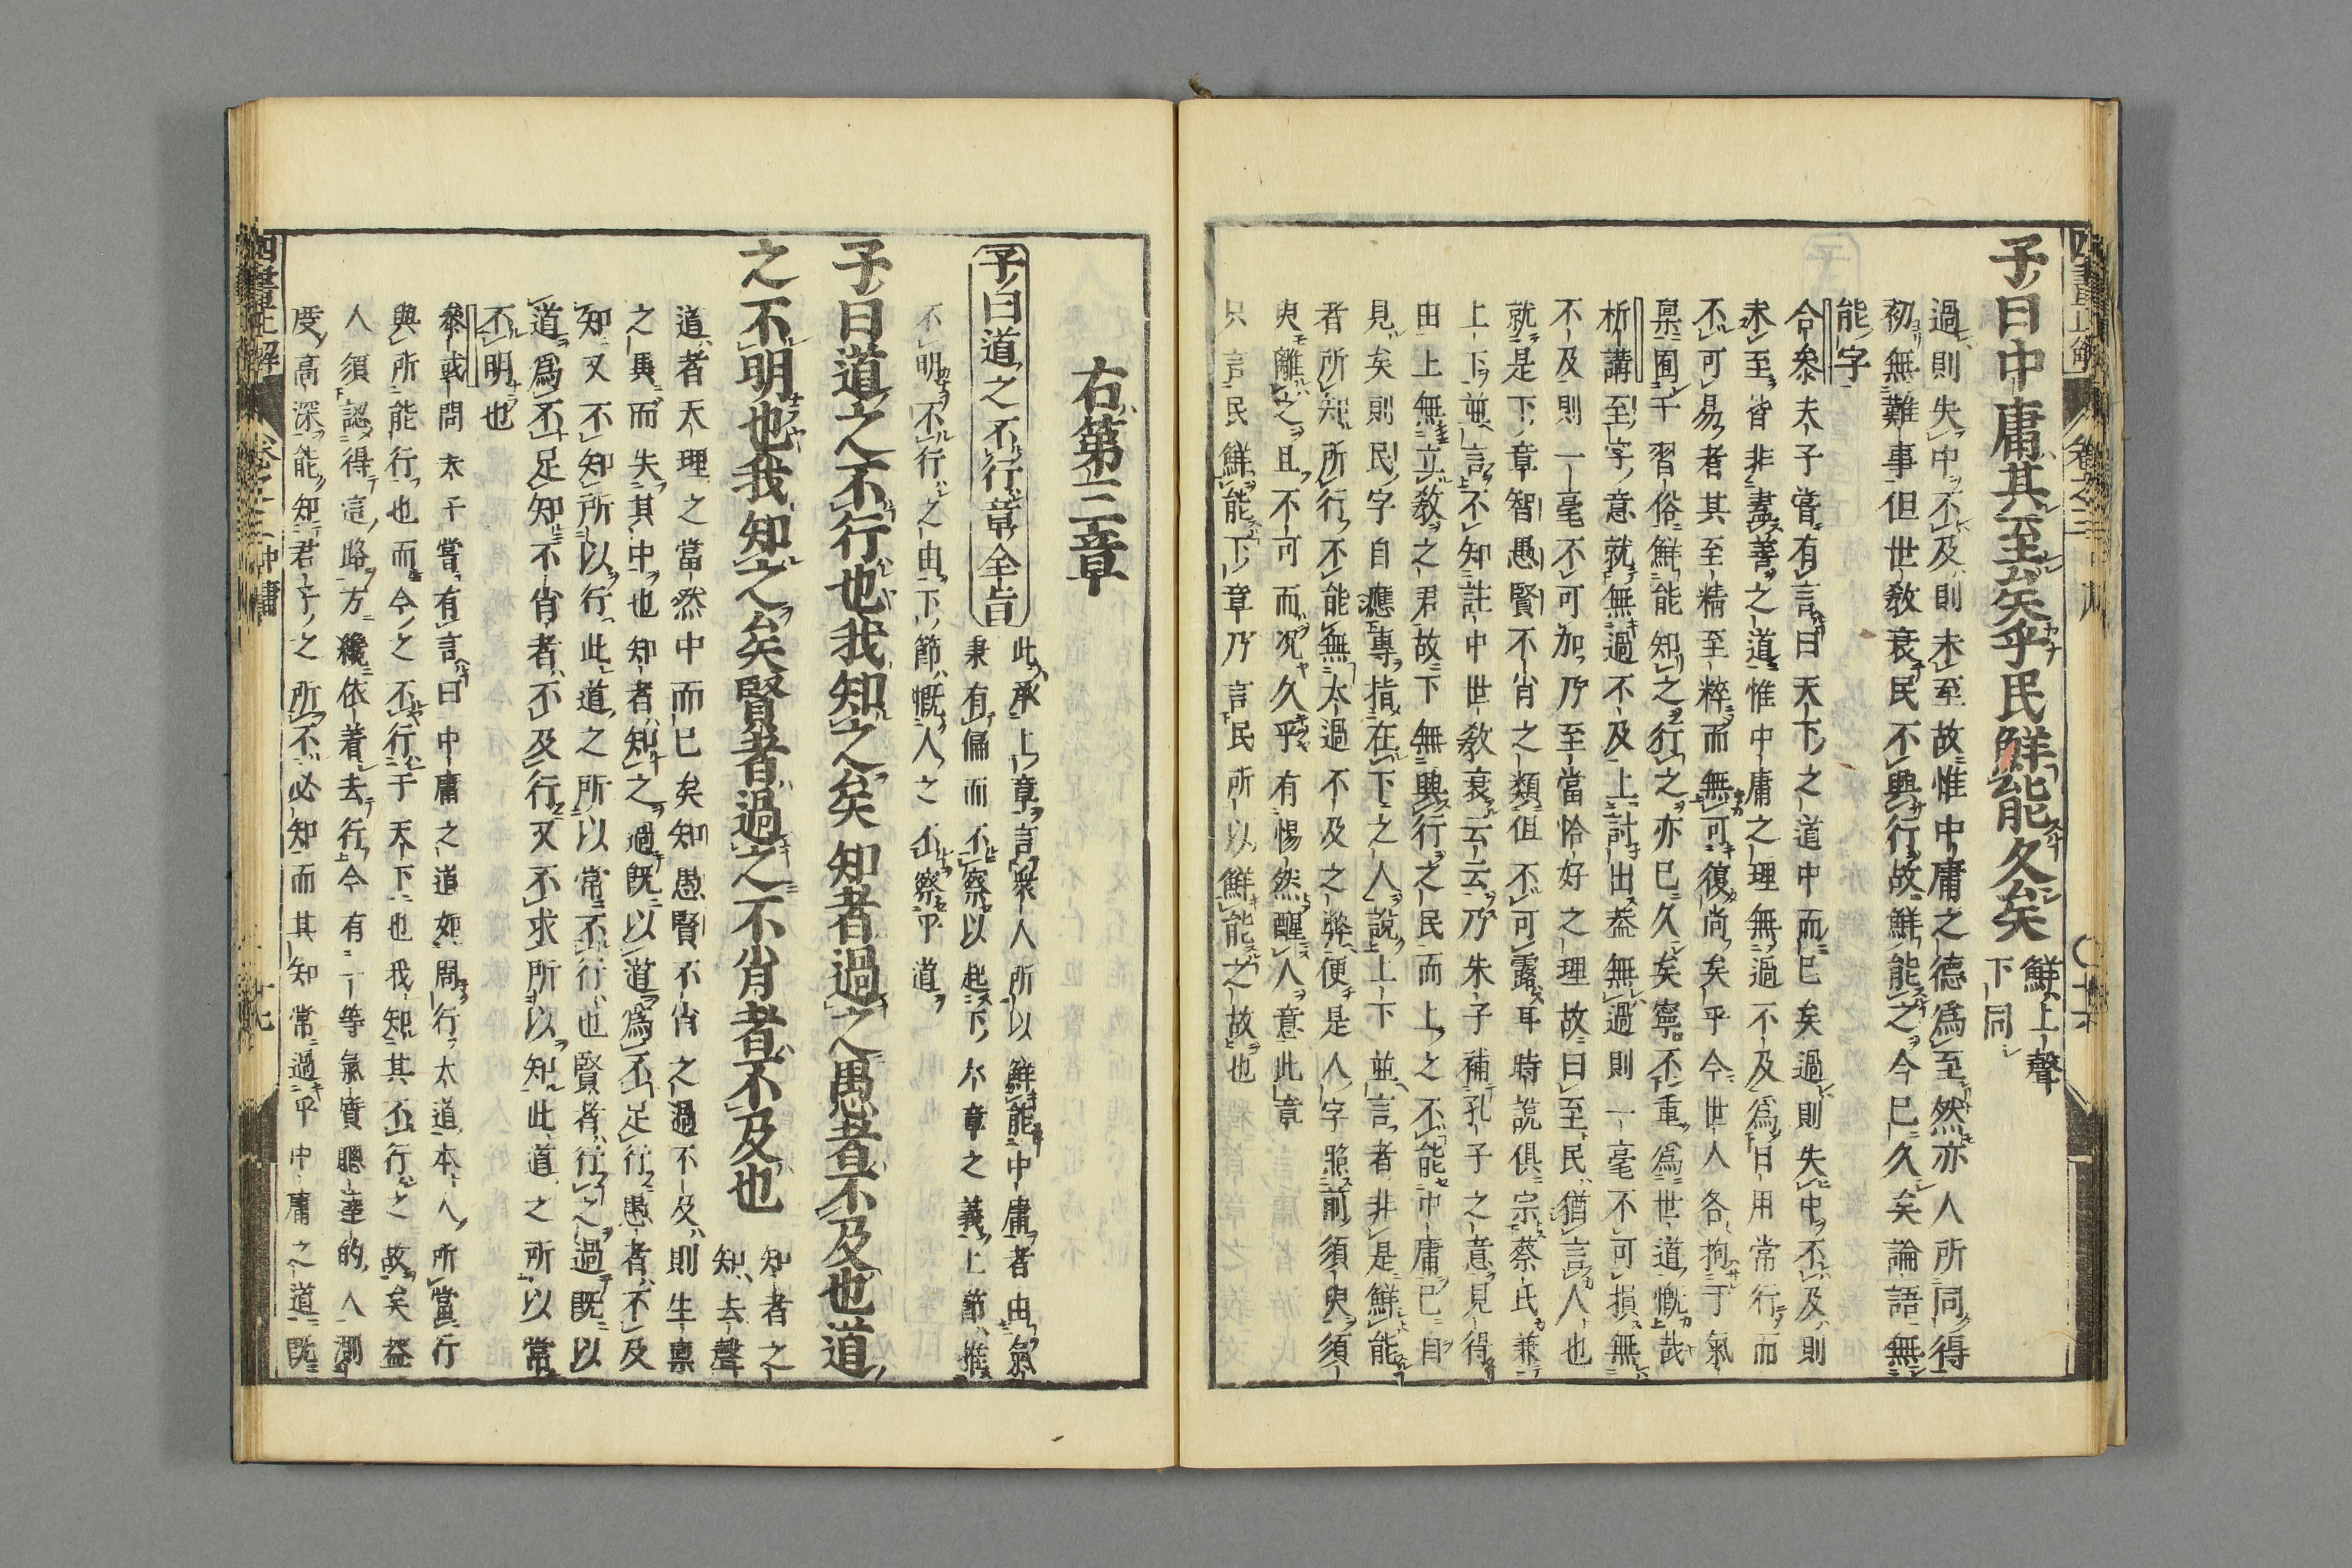 子曰中庸其至矣乎民鮮能久矣 鮮上聲
下同
過則失中不及則未至故惟中庸之德爲至然亦人所同得
初無難事但世教衰民不興行故鮮能之今已久矣論語無
能字
合參夫子嘗有言曰天下之道中而已矣過則失中不及則
未至皆非盡善之道惟中庸之理無過不及爲日用常行而
不可易者其至精至粹而無可復尚矣乎今世人各拘于氣
稟囿于習俗鮮能知之行之亦已久矣寧不重爲世道慨哉
析講至字意就無過不及上討出蓋無過則一毫不可損無
不及則一毫不可加乃至當恰好之理故曰至民猶言人也
就是下章智愚賢不肖之類但不可露耳時説俱宗蔡氏兼
上下並言不知註中世教衰云云乃朱子補孔子之意見得
由上無立教之君故下無興行之民而上之不能中庸已自
見矣則民字自應專指在下之人說上下並言者非是鮮能
者所知所行不能無太過不及之弊便是人字照前須臾須
臾離之且不可而况久乎有惕然醒人意此章
只言民鮮能下章乃言民所以鮮能之故也
右第三章
子曰道之不行章全旨 此承上章言衆人所以鮮能中庸者由氣
秉有偏而不察以起下六章之義上節推
不明不行之由下節慨人之不察乎道
子曰道之不行也我知之矣知者過之愚者不及也道
之不明也我知之矣賢者過之不肖者不及也 知者之
知去聲
道者天理之當然中而已矣知愚賢不肖之過不及則生稟
之異而失其中也知者知之過既以道爲不足行愚者不及
知又不知所以行此道之所以常不行也賢者行之過既以
道爲不足知不肖者不及行又不求所以知此道之所以常
不明也
參或問夫子嘗有言曰中庸之道如周行大道本人所當行
與所能行也而今之不行于天下也我知其不行之故矣蓋
人須認得這路方纔依着去行今有一等氣質聰達的人測
度高深能知君子之所不必知而其知常過乎中庸之道既